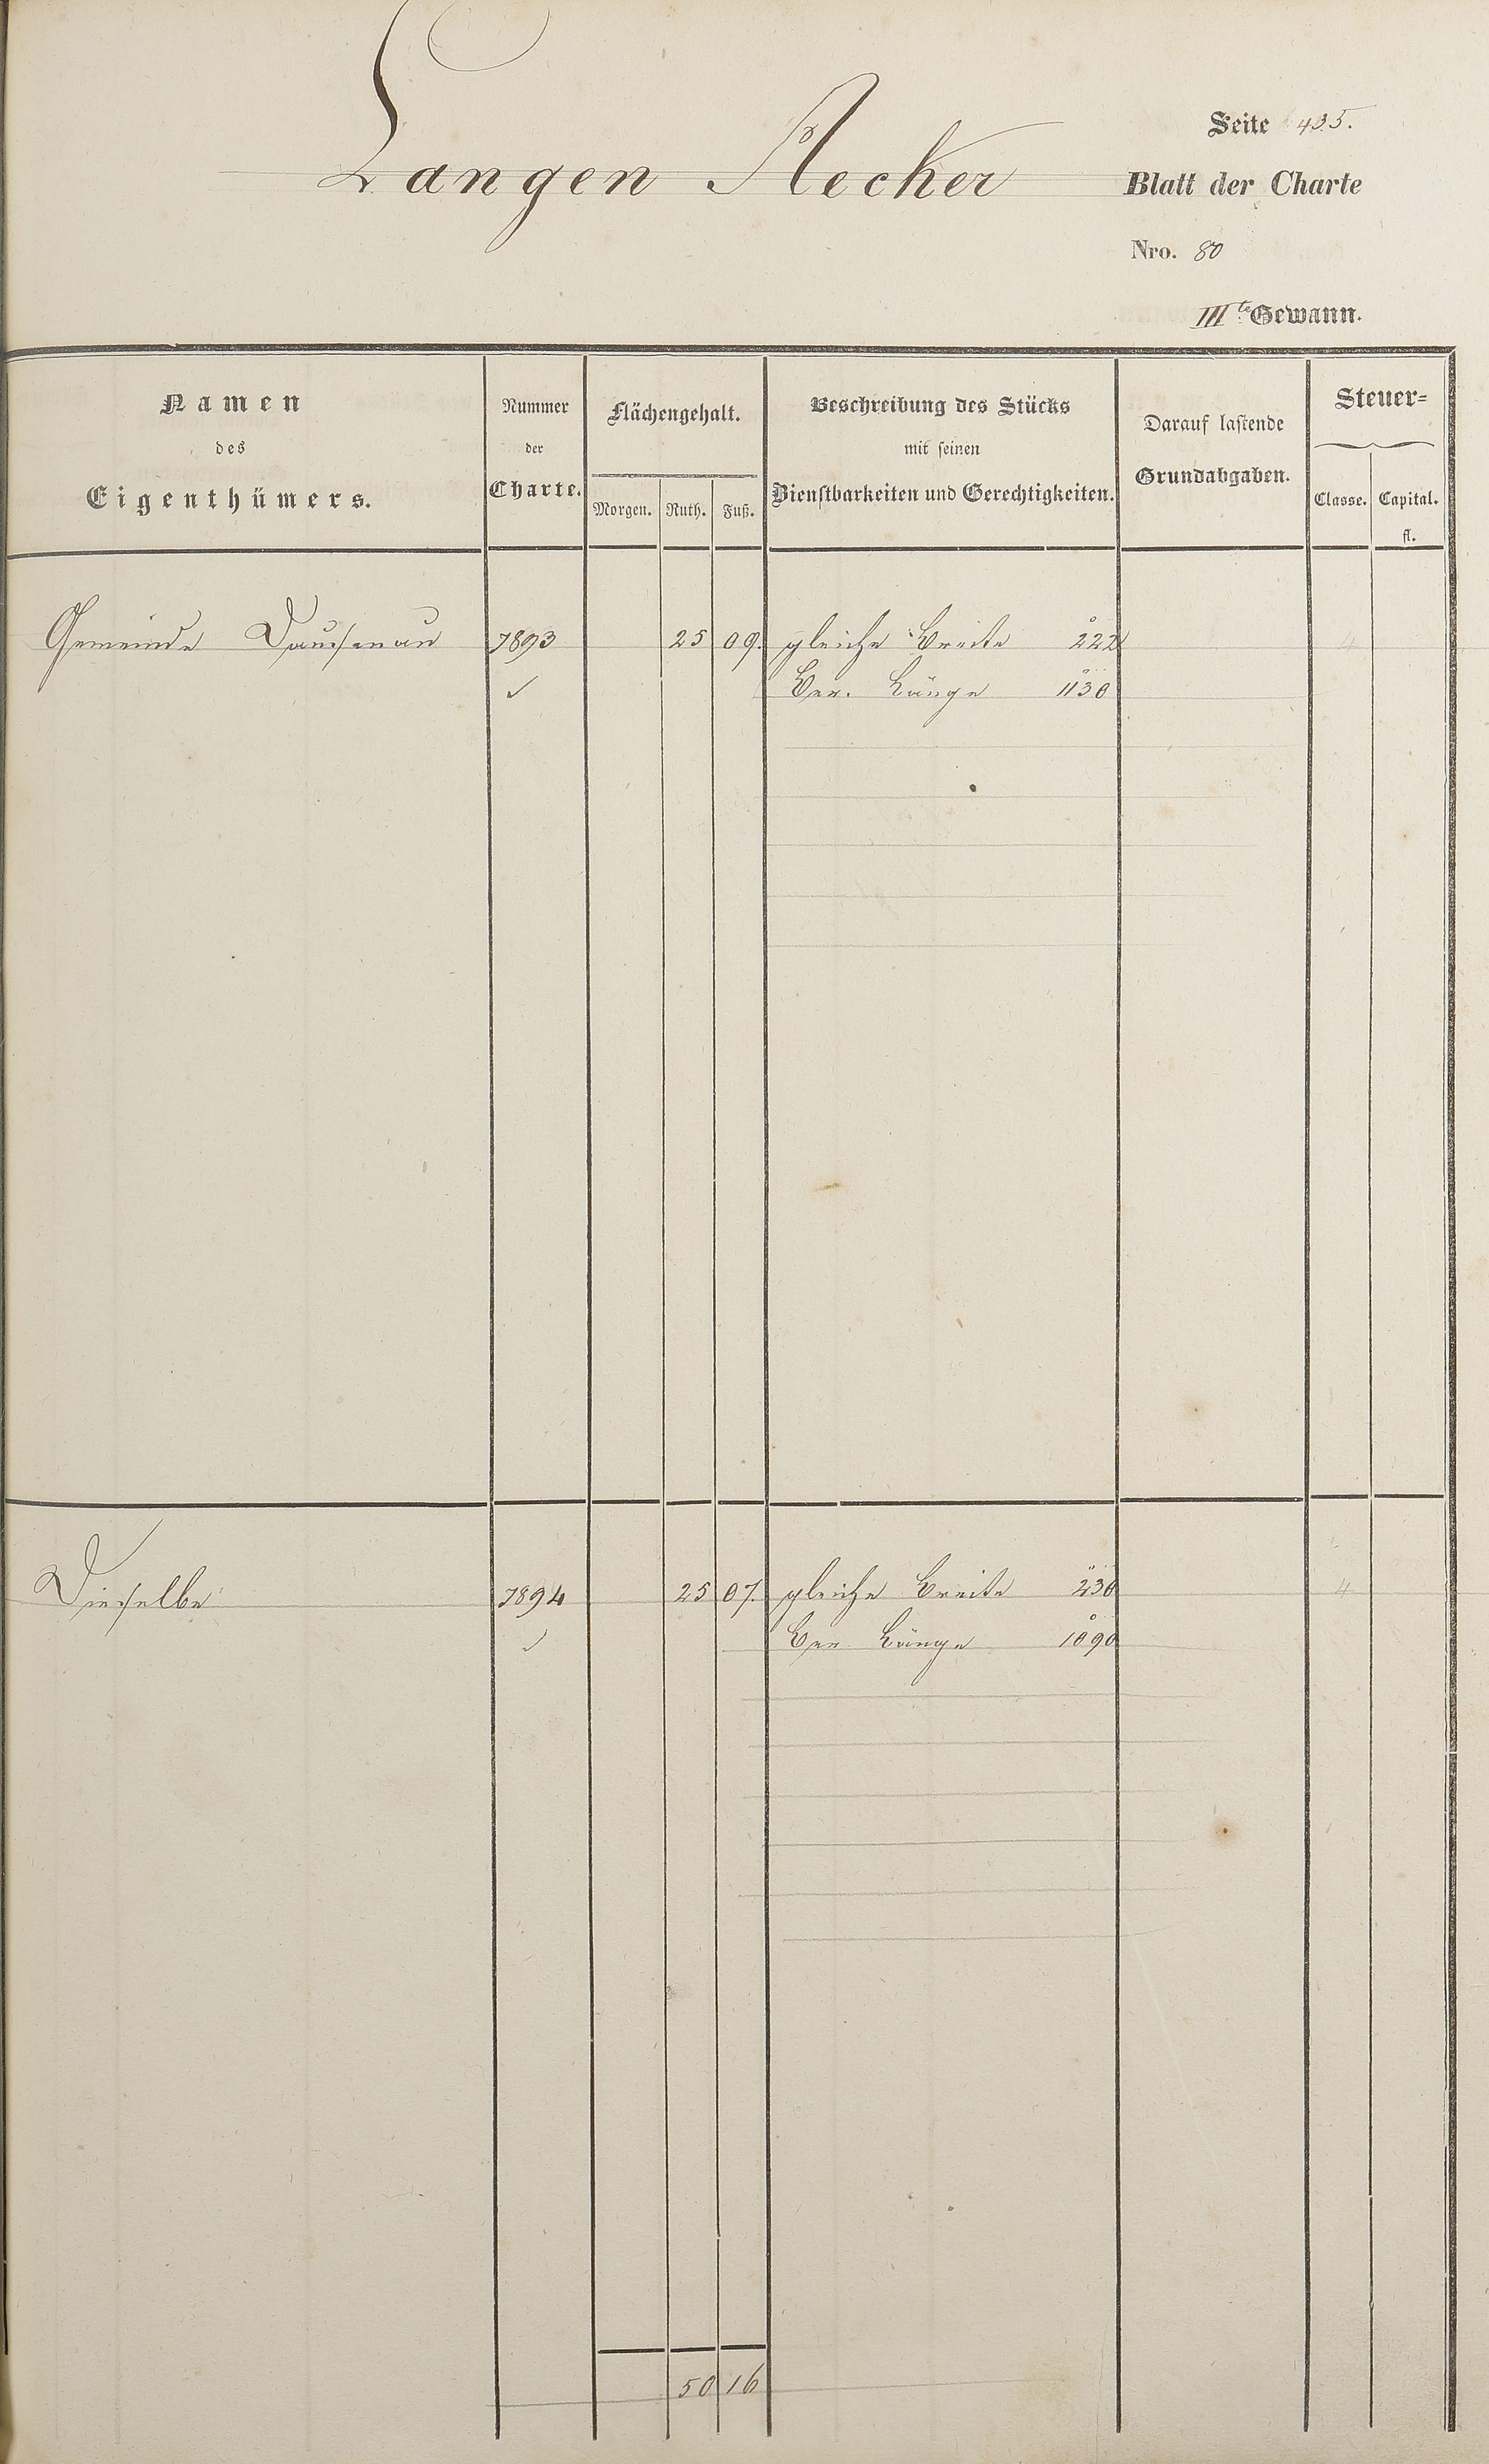 Seite 435.
Langen Aecker
Blatt der Charte
Nro. 80
IIIte Gewann.
Namen
des
Eigenthümers.
Nummer
der
Charte.
Flächengehalt.
Morgen. Ruth. Fuß.
Beschreibung des Stücks
mit seinen
Dienstbarkeiten und Gerechtigkeiten.
Darauf lastende
Grundabgaben.
Steuer=
Classe. Capital.
fl.
Gemeinde Dausenau 7893 25 09. gleiche Breite 222 4
✓ Ber. Länge 1130
Dieselbe 7894 25 07. gleiche Breite 230 4
✓ Ber. Länge 1090
50 16